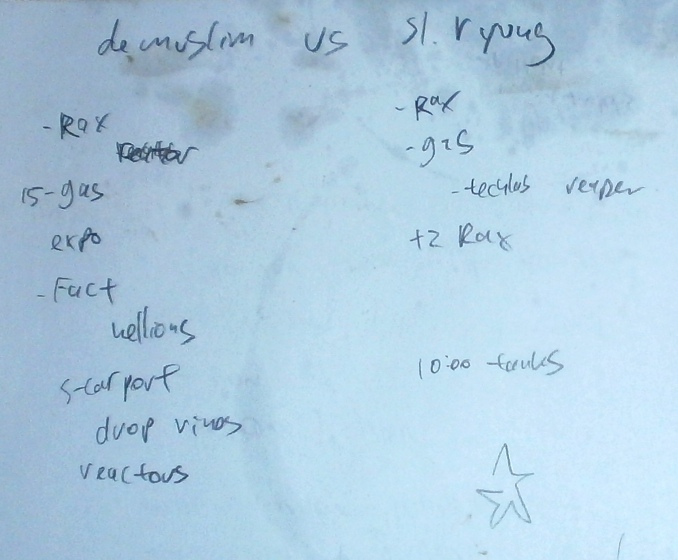 demuslim vs sl.ryung
-Rax
15-gas
expo
-Fact
hellions
starport
drop vikes
reactors
-Rax
-gas
-techlab reaper
+2 Rax
10:00 tanks